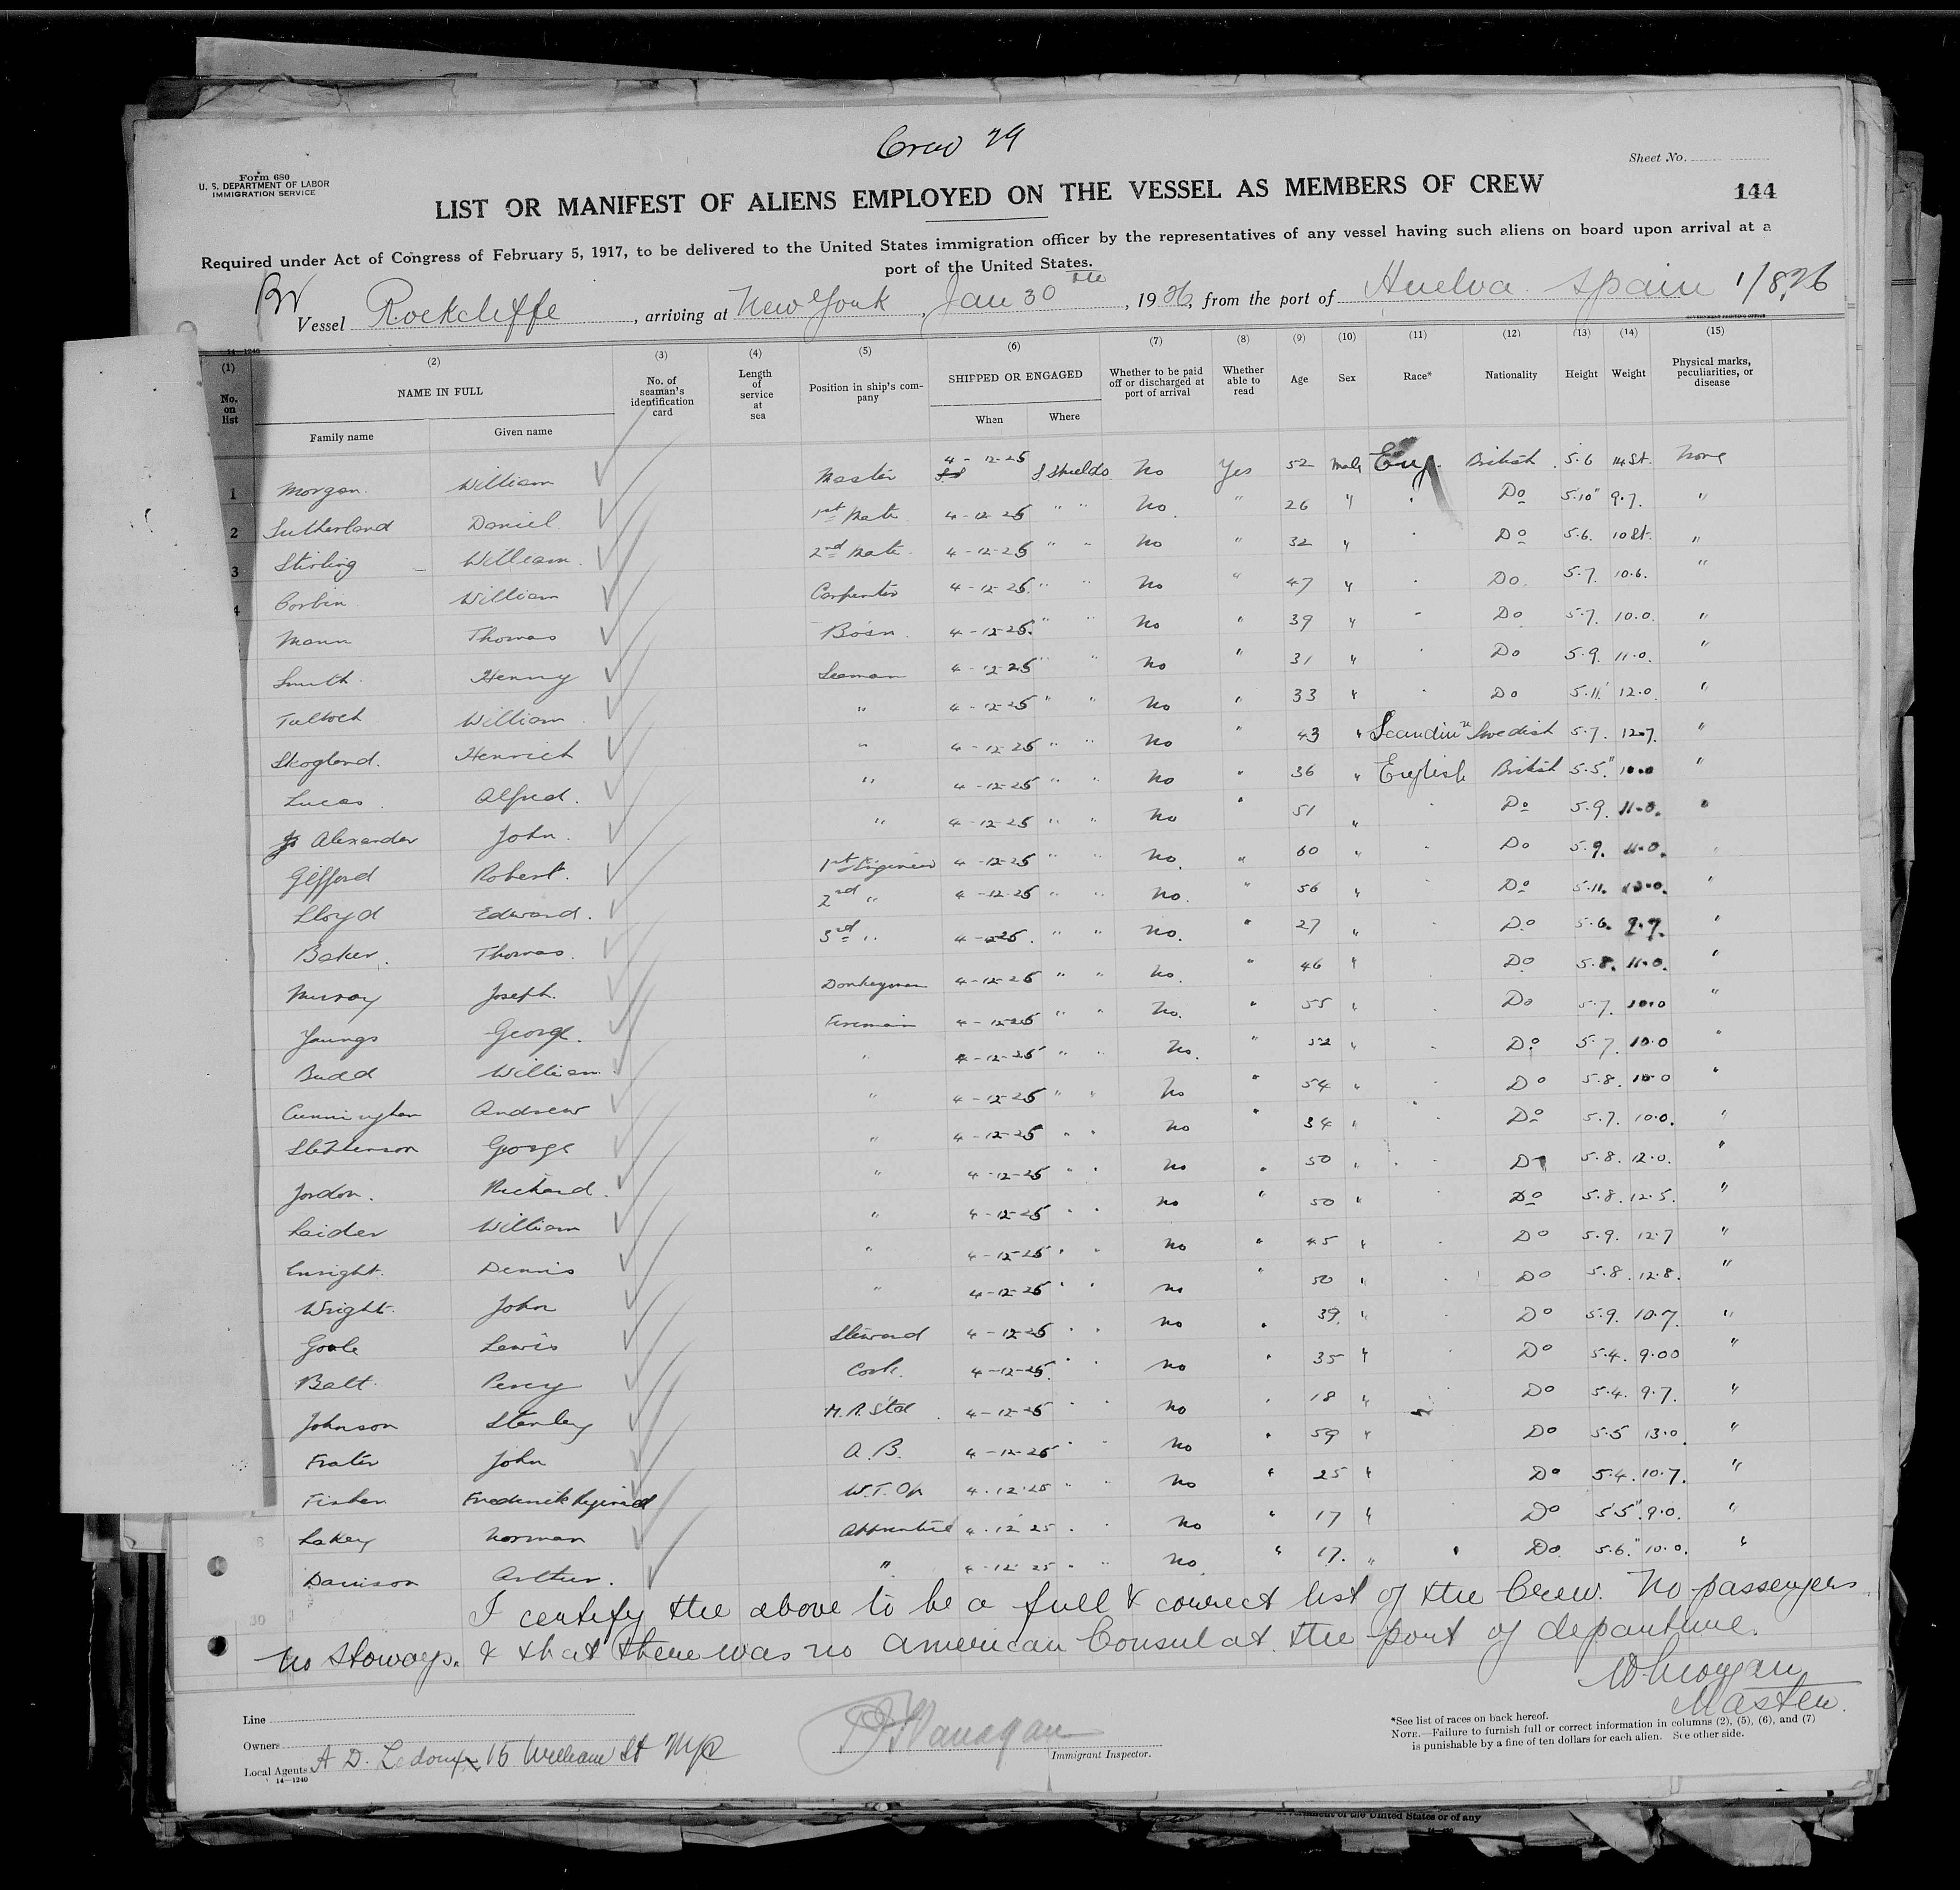 Crew 29
Form 680
U. S. DEPARTMENT OF LABOR
IMMIGRATION SERVICE
Sheet No.
144
LIST OR MANIFEST OF ALIENS EMPLOYED ON THE VESSEL AS MEMBERS OF CREW
Required under Act of Congress of February 5, 1917, to be delivered to the United States immigration officer by the representatives of any vessel having such aliens on board upon arrival at a
port of the United States.
Br Vessel Rockcliffe, arriving at New York, Jan 30th, 1926, from the port of Huelva Spain 1/8/26
GOVERNMENT PRINTING OFFICE
14—1240
(1) (2) (3) (4) (5) (6) (7) (8) (9) (10) (11) (12) (13) (14) (15)
No. on list NAME IN FULL No. of seaman's identification card Length of service at sea Position in ship's company SHIPPED OR ENGAGED Whether to be paid off or discharged at port of arrival Whether able to read Age Sex Race* Nationality Height Weight Physical marks, peculiarities, or disease
Family name Given name When Where
1 Morgan William Master 4-12-25 S Shields No Yes 52 Male Eng. British 5.6 14 St. None
2 Sutherland Daniel 1st Mate 4-12-25 " " No " 26 " " Do 5.10" 9.7. "
3 Stirling William 2nd Mate 4-12-25 " " No " 32 " " Do 5.6. 10 St. "
4 Corbin William Carpenter 4-12-25 " " No " 47 " " Do 5.7. 10.6. "
Mann Thomas Bosn 4-12-25 " " No " 39 " " Do 5.7. 10.0. "
Smith Henry Seaman 4-12-25 " " No " 31 " " Do 5.9. 11.0. "
Tulloch William " 4-12-25 " " No " 33 " " Do 5.11. 12.0. "
Skogland. Henrich " 4-12-25 " " No " 43 " Scandin n Swedish 5.7. 12.7. "
Lucas Alfred. " 4-12-25 " " No " 36 " English British 5.5." 10.0 "
Alexander John. " 4-12-25 " " No " 51 " " Do 5.9. 11.0. "
Gifford Robert. 1st Engineer 4-12-25 " " No. " 60 " " Do 5.9. 11.0. "
Lloyd Edward. 2nd " 4-12-25 " " No. " 56 " " Do 5.11. 12.0. "
Baker. Thomas. 3rd " 4-12-25 " " No. " 27 " " Do 5.6. 9.7. "
Murray Joseph. Donkeyman 4-12-25 " " No. " 46 " " Do 5.8. 11.0. "
Youngs George. Fireman 4-12-25 " " No. " 55 " " Do 5.7. 10.0 "
Budd William " 4-12-25 " " No. " 52 " " Do 5.7. 10.0 "
Cunningham Andrew " 4-12-25 " " No " 54 " " Do 5.8. 10.0 "
Stephenson George " 4-12-25 " " No 34 " " Do 5.7. 10.0. "
Jordon. Richard. " 4-12-25 " " No " 50 " " Do 5.8. 12.0. "
Laider William " 4-12-25 " " No " 50 " " Do 5.8. 12.5. "
Enright. Dennis " 4-12-25 " " No " 45 " " Do 5.9. 12.7 "
Wright. John " 4-12-25 " " No " 50 " " Do 5.8. 12.8. "
Goole Lewis Steward 4-12-25 " " No " 39. " " Do 5.9. 10.7. "
Balt Percy Cook. 4-12-25 " " No " 35 " " Do 5.4. 9.00 "
Johnson Stanley M.R. Std 4-12-25 " " No " 18 " " Do 5.4. 9.7. "
Frater John A.B. 4-12-25 " " No " 59 " Do 5.5 13.0. "
Fisher Frederick Reginald W.T. Op 4.12.25 " " No " 25 " Do 5.4. 10.7. "
8 Lakey Norman Apprentice 4.12.25 " " No " 17 " Do 5.5". 9.0. "
Davison Arthur. " 4-12-25 " " No " 17. " " Do 5.6." 10.0. "
30 I certify the above to be a full & correct list of the Crew. No passengers
No Stoways. & that there was no American Consul at the port of departure.
W Morgan
Master.
Line
Owners
Local Agents A D. Ledoux 15 William St NYC
14—1240
Flanagan
Immigrant Inspector.
*See list of races on back hereof.
NOTE.—Failure to furnish full or correct information in columns (2), (5), (6), and (7)
is punishable by a fine of ten dollars for each alien. See other side.
of the United States or of any